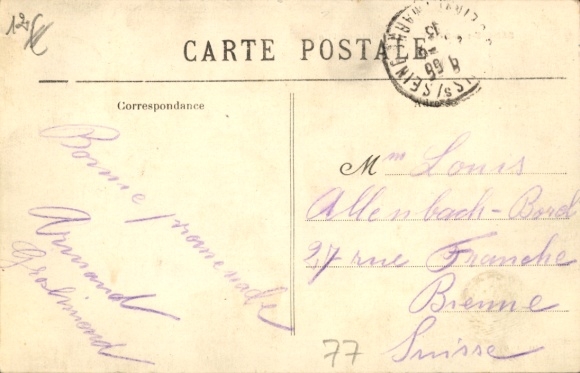 12€
CARTE POSTALE
Correspondance
Adresse
Bonne promenade
Armand
Grosjimond
Mme Louis
Allenbach-Borel
27 rue Franche
Bienne
Suisse
77